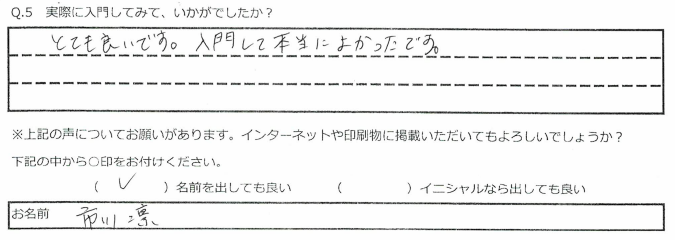 Q.5 実際に入門してみて、いかがでしたか？
とても良いです。入門して本当によかったです。
※上記の声についてお願いがあります。インターネットや印刷物に掲載いただいてもよろしいでしょうか？
下記の中から○印をお付けください。
（ ✓ ）名前を出しても良い （ ）イニシャルなら出しても良い
お名前 市川 凛